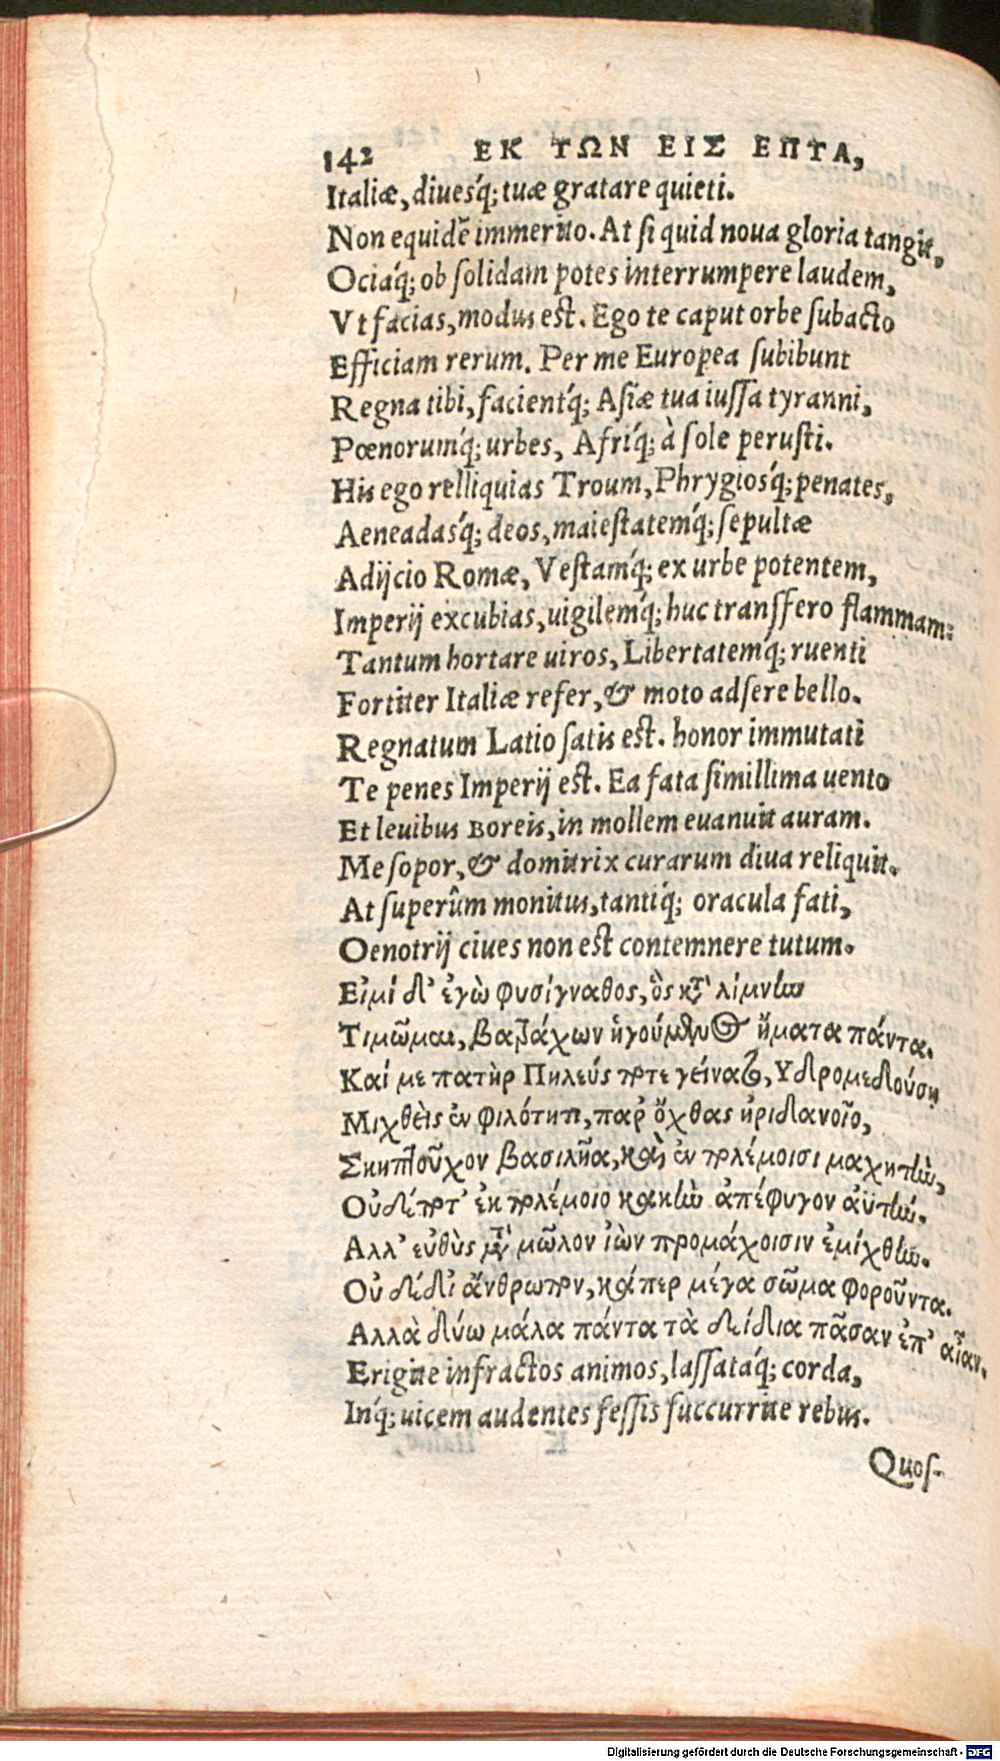 142 ΕΚ ΤΩΝ ΕΙΣ ΕΠΤΑ,
Italiæ, diuesq́; tuæ gratare quieti.
Non equidẽ immerito. At si quid noua gloria tangit,
Ociaq́; ob solidam potes interrumpere laudem,
Vt facias, modus est. Ego te caput orbe subacto
Efficiam rerum. Per me Europea subibunt
Regna tibi, facientq́; Asiæ tua iussa tyranni,
Pœnorumq́; urbes, Afriq́; à sole perusti.
His ego relliquias Troum, Phrygiosq́; penates,
Aeneadasq́; deos, maiestatemq́; sepultæ
Adijcio Romæ, Vestamq́; ex urbe potentem,
Imperij excubias, uigilemq́; huc transfero flammam:
Tantum hortare uiros, Libertatemq́; ruenti
Fortiter Italiæ refer, & moto adsere bello.
Regnatum Latio satis est. honor immutati
Te penes Imperij est. Ea fata simillima uento
Et leuibus Boreis, in mollem euanuit auram.
Me sopor, & domitrix curarum diua reliquit.
At superûm monitus, tantiq́; oracula fati,
Oenotrij ciues non est contemnere tutum.
Εἰμί δ' ἐγὼ φυσίγναθος, ὃς κτ̀ λίμνίω
Τιμῶμαι, βαβάχων ἡγούμενος ἤματα πάντα.
Καί με πατὴρ Πηλεύς ποτε γείνατο, Υδρομεδούσῃ
Μιχθεὶς ἐν φιλότητι, παρ' ὄχθας ἠριδανοῖο,
Σκηπτοῦχον βασιλῆα, καὶ ἐν πολέμοισι μαχητὼ,
Οὐδέποτ' ἐκ πολέμοιο κακὼ ἀπέφυγον ἀϋτὼ.
Αλλ' εὐθὺς μετὰ μῶλον ἰὼν προμάχοισιν ἐμίχθὼ.
Οὐ δέδι' ἄνθρωπον, καί περ μέγα σῶμα φοροῦντα.
Αλλὰ δύω μάλα πάντα τὰ δείδια πᾶσαν ἐπ' αἶαν.
Erigite infractos animos, lassataq́; corda,
Inq́; uicem audentes fessis succurrite rebus.
Quos-
Digitalisierung gefördert durch die Deutsche Forschungsgemeinschaft - DFG